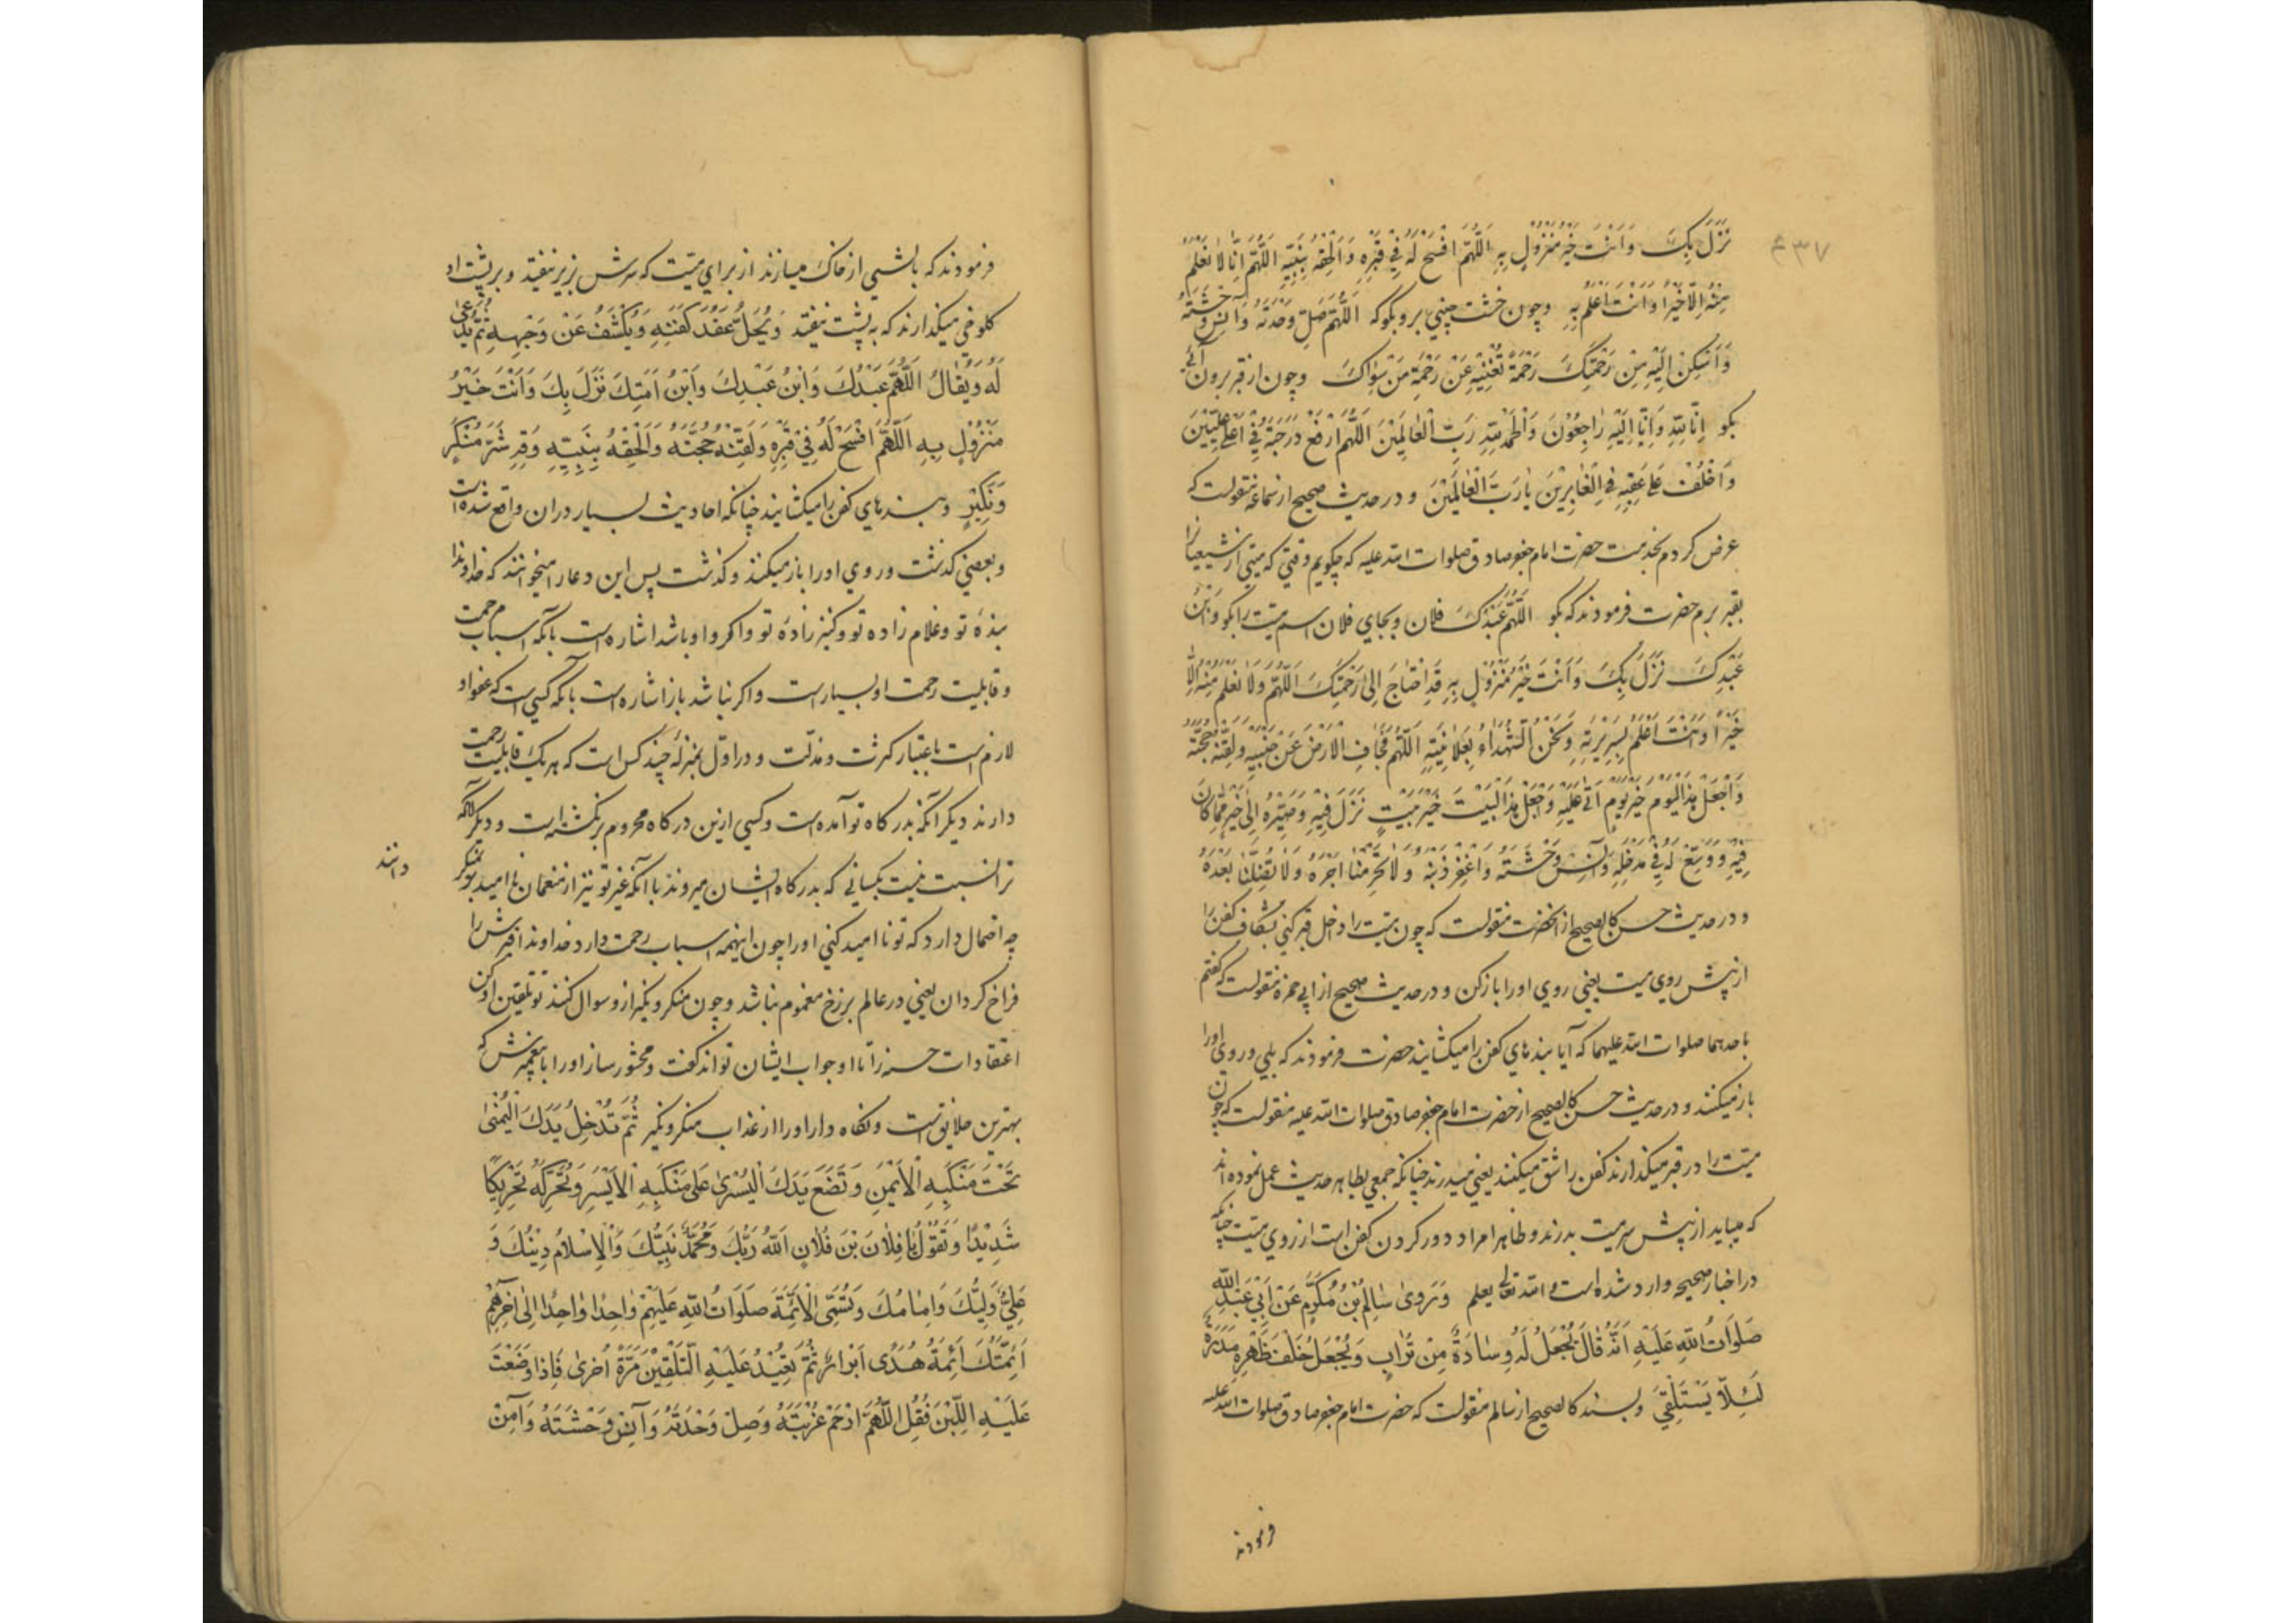 ۴۳۷
نَزَلَ بِكَ وَاَنْتَ خَيْرُ مَنْزُوْلٍ بِهِ اَللّٰهُمَّ افْسَحْ لَهُ فِيْ قَبْرِهِ وَاَلْحِقْهُ بِنَبِيِّهِ اَللّٰهُمَّ اِنَّا لَا نَعْلَمُ
مِنْهُ اِلَّا خَيْرًا وَاَنْتَ اَعْلَمُ بِهِ وچون خشت چینی برو بگو که اَللّٰهُمَّ صِلْ وَحْدَتَهُ وَاٰنِسْ وَحْشَتَهُ
وَاَسْكِنْ اِلَيْهِ مِنْ رَحْمَتِكَ رَحْمَةً تُغْنِيْهِ عَنْ رَحْمَةِ مَنْ سِوَاكَ وچون از قبر برون آئی
بگو اِنَّا لِلّٰهِ وَاِنَّا اِلَيْهِ رَاجِعُوْنَ وَالْحَمْدُ لِلّٰهِ رَبِّ الْعَالَمِيْنَ اَللّٰهُمَّ ارْفَعْ دَرَجَتَهُ فِيْ اَعْلٰى عِلِّيِّيْنَ
وَاخْلُفْ عَلٰى عَقِبِهِ فِي الْغَابِرِيْنَ يَا رَبَّ الْعَالَمِيْنَ و در حدیث صحیح از سماعه منقولست که
عرض کردم بخدمت حضرت امام جعفر صادق صلوات الله علیه که چگویم وقتی که میتی از شیعیانرا
بقبر برم حضرت فرمودند که بگو اَللّٰهُمَّ عَبْدُكَ فلان و بجای فلان اسم میت را بگو وَابْنُ
عَبْدِكَ نَزَلَ بِكَ وَاَنْتَ خَيْرُ مَنْزُوْلٍ بِهِ قَدِ احْتَاجَ اِلٰى رَحْمَتِكَ اَللّٰهُمَّ وَلَا نَعْلَمُ مِنْهُ اِلَّا
خَيْرًا وَاَنْتَ اَعْلَمُ بِسَرِيْرَتِهِ وَنَحْنُ الشُّهَدَاءُ بِعَلَانِيَتِهِ اَللّٰهُمَّ فَجَافِ الْاَرْضَ عَنْ جَنْبَيْهِ وَلَقِّنْهُ حُجَّتَهُ
وَاجْعَلْ هٰذَا الْيَوْمَ خَيْرَ يَوْمٍ اَتٰى عَلَيْهِ وَاجْعَلْ هٰذَا الْبَيْتَ خَيْرَ بَيْتٍ نَزَلَ فِيْهِ وَصَيِّرْهُ اِلٰى خَيْرٍ مِمَّا كَانَ
فِيْهِ وَوَسِّعْ لَهُ فِيْ مَدْخَلِهِ وَاٰنِسْ وَحْشَتَهُ وَاغْفِرْ ذَنْبَهُ وَلَا تَحْرِمْنَا اَجْرَهُ وَلَا تُضِلَّنَا بَعْدَهُ
و در حدیث حسن کالصحیح از انحضرت منقولست که چون میت را داخل قبر کنی بشکاف کفن را
از پیش روی میت یعنی روی او را باز کن و در حدیث صحیح از ابی حمزه منقولست که گفتم
باحدهما صلوات الله علیهما که آیا بندهای کفن را میکشایند حضرت فرمودند که بلی و روی او را
باز میکنند و در حدیث حسن کالصحیح از حضرت امام جعفر صادق صلوات الله علیه منقولست که چون
میت را در قبر میگذارند کفن را شق میکنند یعنی میدرند چنانکه جمعی بظاهر حدیث عمل نموده اند
که میباید از پیش سر میت بدرند و ظاهرا مراد دور کردن کفن است از روی میت چنانکه
در اخبار صحیحه وارد شده است و الله تعالی یعلم وَرَوٰى سَالِمُ بْنُ مُكْرَمٍ عَنْ اَبِيْ عَبْدِ اللّٰهِ
صَلَوَاتُ اللّٰهِ عَلَيْهِ اَنَّهُ قَالَ يُجْعَلُ لَهُ وِسَادَةٌ مِنْ تُرَابٍ وَيُجْعَلُ خَلْفَ ظَهْرِهِ مَدَرَةٌ
لِئَلَّا يَسْتَلْقِيَ و بسند کالصحیح از سالم منقولست که حضرت امام جعفر صادق صلوات الله علیه
فرمودند
فرمودند که بالشی از خاک میسازند از برای میت که سرش زیر نیفتد و بر پشت او
کلوخی میگذارند که به پشت نیفتد وَيُحَلُّ عُقَدُ كَفَنِهِ وَيُكْشَفُ عَنْ وَجْهِهِ ثُمَّ يُدْعٰى
لَهُ وَيُقَالُ اَللّٰهُمَّ عَبْدُكَ وَابْنُ عَبْدِكَ وَابْنُ اَمَتِكَ نَزَلَ بِكَ وَاَنْتَ خَيْرُ
مَنْزُوْلٍ بِهِ اَللّٰهُمَّ افْسَحْ لَهُ فِيْ قَبْرِهِ وَلَقِّنْهُ حُجَّتَهُ وَاَلْحِقْهُ بِنَبِيِّهِ وَقِهِ شَرَّ مُنْكَرٍ
وَنَكِيْرٍ و بندهای کفن را میکشایند چنانکه احادیث بسیار دران واقع شده است
و بعضی گذشت و روی او را باز میکنند و گذشت پس این دعا را میخوانند که خداوندا
بندهٔ تو و غلام زاده تو و کنیز زادهٔ تو و اگر واو باشد اشاره است بآنکه اسباب رحمت
و قابلیت رحمت او بسیار است و اگر نباشد باز اشاره است بآنکه کسی است که عفو او
لازم است باعتبار کثرت مذلت و در اول بمنزلهٔ چند کس است که هر یک قابلیت رحمت
دارند دیگر آنکه بدرگاه تو آمده است و کسی ازین درگاه محروم برنگشته است و دیگر آنکه
ترا نسبت نیست بکسانی که بدرگاه ایشان میروند با آنکه غیر تو نیز از منعمان نا امید بر نمیگر
دانند
چه احتمال دارد که تو نا امید کنی او را چون اینهمه اسباب رحمت دارد خداوندا قبرش را
فراخ گردان یعنی در عالم برزخ مغموم نباشد و چون منکر و نکیر ازو سوال کنند تو تلقین او کن
اعتقادات حسنه را تا او جواب ایشان تواند گفت و محشور ساز او را با پیغمبرش که
بهترین خلایق است و نگاه دار او را از عذاب منکر و نکیر ثُمَّ تُدْخِلُ يَدَكَ الْيُمْنٰى
تَحْتَ مَنْكِبِهِ الْاَيْمَنِ وَتَضَعُ يَدَكَ الْيُسْرٰى عَلٰى مَنْكِبِهِ الْاَيْسَرِ وَتُحَرِّكُهُ تَحْرِيْكًا
شَدِيْدًا وَتَقُوْلُ يَا فُلَانَ بْنَ فُلَانٍ اَللّٰهُ رَبُّكَ وَمُحَمَّدٌ نَبِيُّكَ وَالْاِسْلَامُ دِيْنُكَ وَ
عَلِيٌّ وَلِيُّكَ وَاِمَامُكَ وَتُسَمِّى الْاَئِمَّةَ صَلَوَاتُ اللّٰهِ عَلَيْهِمْ وَاحِدًا وَاحِدًا اِلٰى اٰخِرِهِمْ
اَئِمَّتُكَ اَئِمَّةُ هُدًى اَبْرَارٌ ثُمَّ تُعِيْدُ عَلَيْهِ التَّلْقِيْنَ مَرَّةً اُخْرٰى فَاِذَا وَضَعْتَ
عَلَيْهِ اللَّبِنَ فَقُلِ اللّٰهُمَّ ارْحَمْ غُرْبَتَهُ وَصِلْ وَحْدَتَهُ وَاٰنِسْ وَحْشَتَهُ وَاٰمِنْ